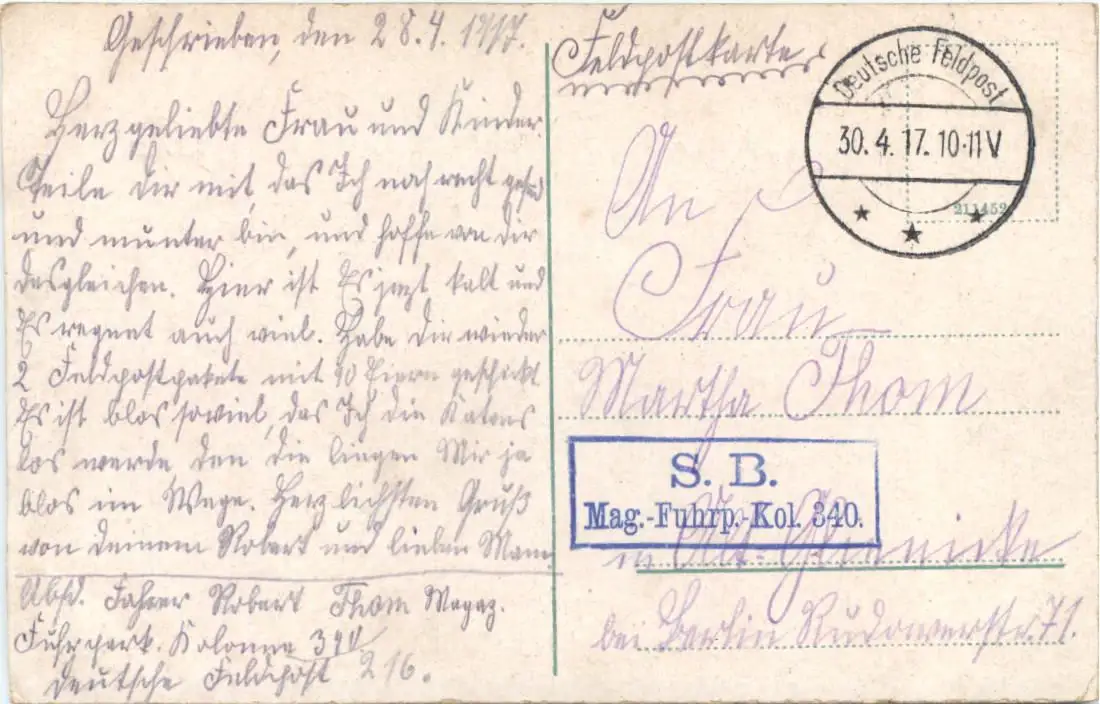 Geschrieben, den 28.4.1917.
Herzgeliebte Frau und Kinder
Teile dir mit, das Ich noch recht gesund
und munter bin, und hoffe von dir
desgleichen. Hier ist Es jezt kalt und
Es regnet auch viel. Habe dir wieder
2 Feldpostpakete mit 10 Eiern geschickt
Es ist blos soviel, das Ich die
los werde den die liegen Mir ja
blos im Wege. Herzlichsten Gruß
von deinem Robert und lieben Mann
Absd. Fahrer Robert Thom Magaz.
Fuhrpark. Kolonne 340
deutsche Feldpost 216.
Feldpostkarte
Deutsche Feldpost
30. 4. 17. 10-11 V
211452
An
Frau
Martha Thom
S. B.
Mag.-Fuhrp.-Kol. 340.
in Alt-Glienicke
bei Berlin Rudowerstr. 71.